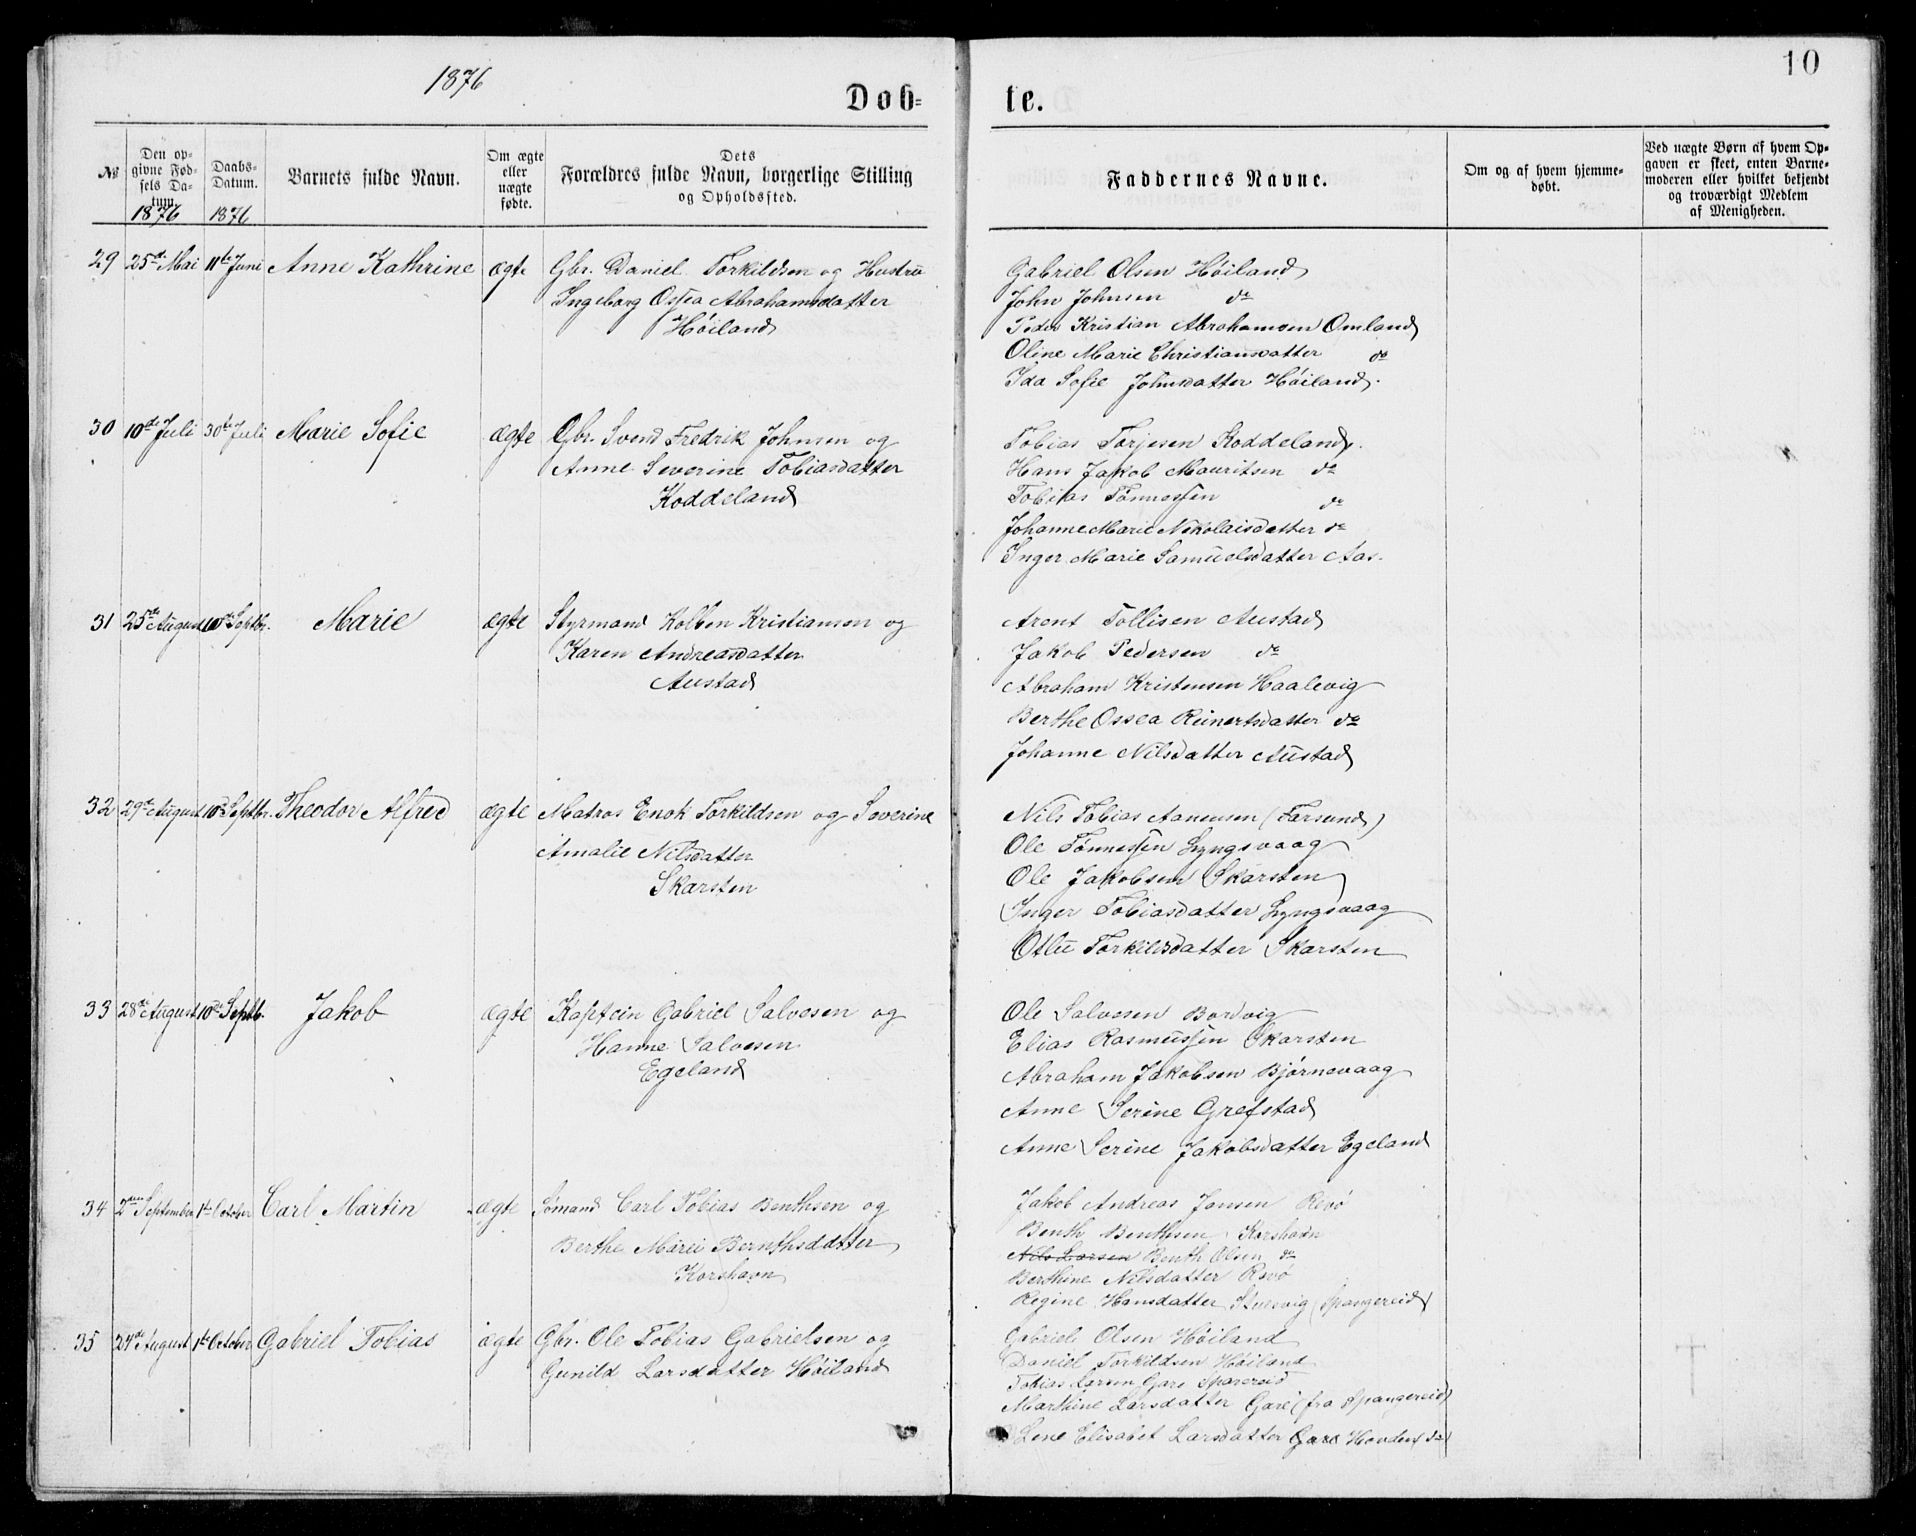 1876
10
Døb-
te.
№
Den op-
givne Fød-
sels Da-
tum.
1876
Daabs-
Datum.
1876
Barnets fulde Navn.
Om ægte
eller
uægte
fødte.
Dets
Forældres fulde Navn, borgerlige Stilling
og Opholdssted.
Faddernes Navne.
Om og af hvem hjemme-
døbt.
Ved uægte Børn af hvem Op-
gaven er skeet, enten Barne-
moderen eller hvilket bekjendt
og troværdigt Medlem
af Menigheden.
29 25de Mai 11te Juni Anne Kathrine ægte Gbr. Daniel Torkildsen og Hustru
Ingeborg Ossea Abrahamsdatter
Høiland
Gabriel Olsen Høiland
John Johnsen do
Peder Kristian Abrahamsen Omland
Oline Marie Christiansdatter do
Ida Sofie Johnsdatter Høiland.
30 10de Juli 30te Juli Marie Sofie ægte Gbr. Svend Fredrik Johnsen og
Anne Severine Tobiasdatter
Koddeland
Tobias Torjesen Koddeland.
Hans Jakob Mauritsen do
Tobias Tønnessen do
Johanne Marie Nikolaisdatter do
Inger Marie Samuelsdatter Aas.
31 25de August 10de Septbr. Marie ægte Styrmand Kolben Kristiansen og
Karen Andreasdatter
Austad
Arent Tollisen Austad
Jakob Pedersen do
Abraham Kristensen Haalevig
Berthe Ossea Reinertsdatter do
Johanne Nilsdatter Austad
32 29de August 10de Septbr. Theodor Alfred ægte Matros Enok Torkildsen og Severine
Amalie Nilsdatter
Skarsten
Nils Tobias Aanensen (Farsund)
Ole Tønnessen Lyngsvaag
Ole Jakobsen Skarsten
Inger Tobiasdatter Lyngsvaag
Torkildsdatter Skarsten
33 28de August 10de Septb. Jakob ægte Kaptein Gabriel Salvesen og
Hanne Salvesen
Egeland
Ole Salvesen Bordvig
Elias Rasmussen Skarsten
Abraham Jakobsen Bjørnevaag
Anne Serine Grefstad
Anne Serine Jakobsdatter Egeland
34 2den September 1te October Carl Martin ægte Sømand Carl Tobias Benthsen og
Berthe Marie Bernthsdatter
Korshavn
Jakob Andreas Jansen Revø
Benth Benthsen Korshavn
Nils Larsen Benth Olsen do
Berthine Nilsdatter Revø
Regine Hansdatter (Spangereid)
35 24de August 1te October Gabriel Tobias ægte Gbr. Ole Tobias Gabrielsen og
Gunild Larsdatter Høiland
Gabriele Olsen Høiland
Daniel Torkildsen Høiland
Tobias Larsen Gare
Marthine Larsdatter Gare (fra Spangereid)
Lene Elisabet Larsdatter Gare do